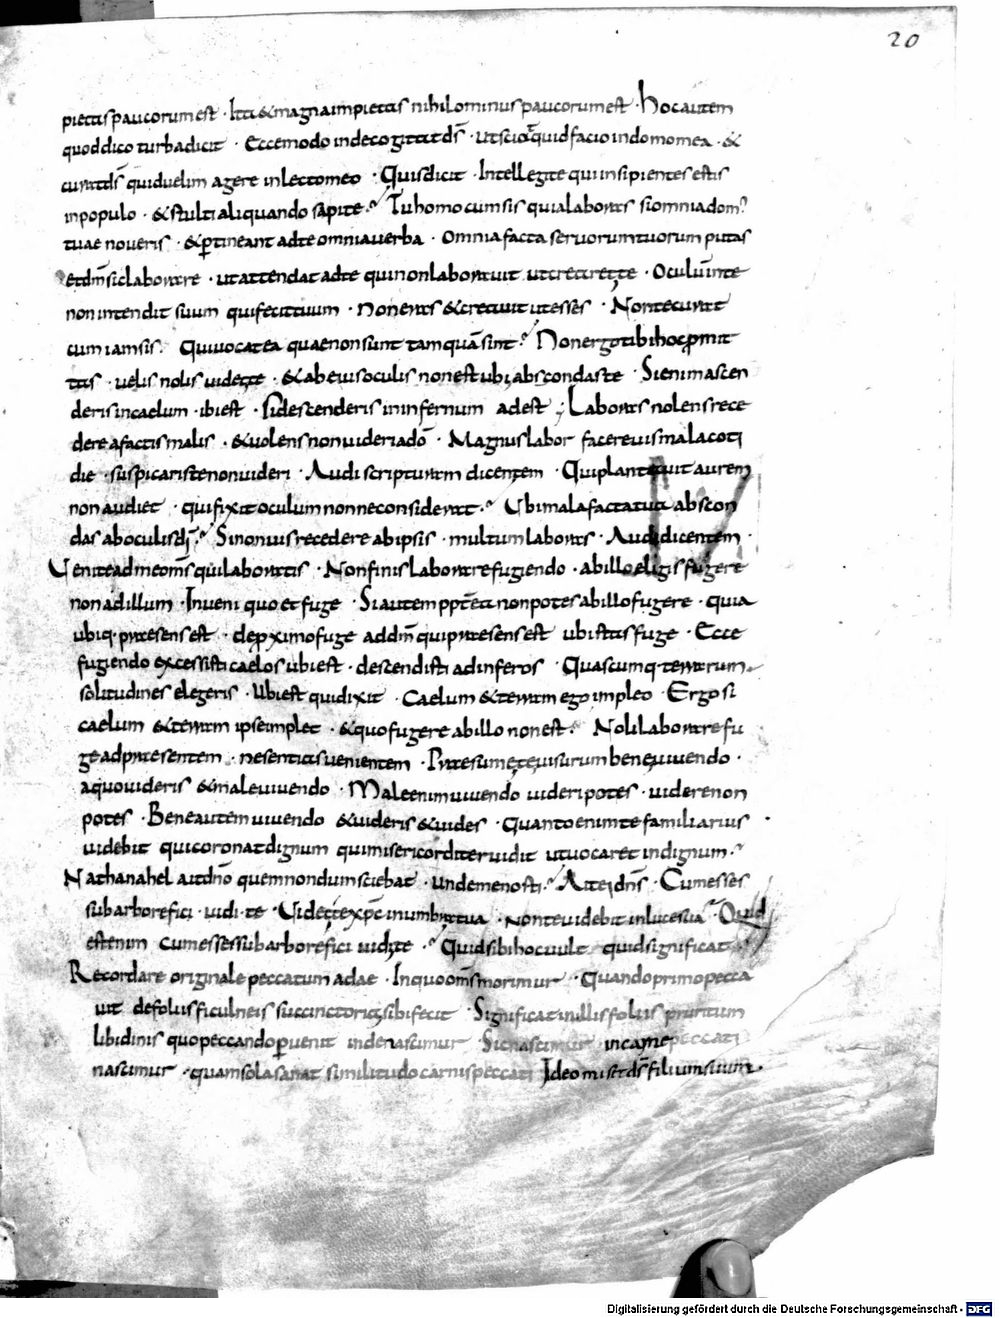 20
pietas paucorum est · Ita & magna impietas nihilominus paucorum est · Hoc autem
quod dico turba dicit · Ecce modo inde cogitat d̄s · ut sciat quid facio in domo mea · &
curat d̄s quid uelim agere in lecto meo · Quis dicit · Intellegite qui insipientes estis
in populo · & stulti aliquando sapite · Tu homo cum sis quia laboras si omnia
tuae noueris · & ꝑtineant ad te omnia uerba · Omnia facta seruorum tuorum putas
et dm̄ sic laborare · ut attendat ad te qui non laborauit ut crearet te · Oculū in te
non intendit suum qui fecit tuum · Non eras & creauit ut esses · Non te curat
cum iam sis · Qui uocat ea quae non sunt tamquā sint · Non ergo tibi hoc promit
tas · uelis nolis uidet te · & ab eius oculis non est ubi abscondas te · Si enim ascen
deris in caelum · ibi est · Si descenderis in infernum adest ; Laboras nolens rece
dere a factis malis · & uolens non uideri a dō · Magnus labor facere uis mala coti
die · suspicaris te non uideri · Audi scripturam dicentem · Qui plantauit aurem
non audiet · qui fixit oculum nonne considerat · Ubi mala facta tua abscon
das ab oculis dī · Si non uis recedere ab ipsis · multum laboras · Audi dicentem ·
Uenite ad me oms̄ qui laboratis · Non finis laborare fugiendo · ab illo eligis fugere
non ad illum · Inueni quo et fuge · Si autem ppterea non potes ab illo fugere · quia
ubiq· praesens est · de proximo fuge ad dm̄ qui praesens est ubi stas fuge · Ecce
fugiendo excessisti caelos ubi est · descendisti ad inferos · Quascumq· terrarum
solitudines elegeris · Ubi est qui dixit · Caelum & terram ego impleo · Ergo si
caelum & terram ipse implet · & quo fugere ab illo non est · Noli laborare fu
ge ad praesentem · ne sentias uenientem · Praesume te uisurum bene uiuendo ·
a quo uideris & male uiuendo · Male enim uiuendo uideri potes · uidere non
potes · Bene autem uiuendo & uideris & uides · Quanto enim te familiarius
uidebit qui coronat dignum qui misericorditer uidit ut uocaret indignum ·
Nathanahel ait dnō quem nondum sciebat · Unde me nosti · Ait ei dn̄s · Cum esses
sub arbore fici · uidi · te · Uidet te xp̄c in umbra tua · non te uidebit in luce sua · Quid
est enim cum esses sub arbore fici uidi te · Quid sibi hoc uult quid significat ·
Recordare originale peccatum adae · In quo oms̄ morimur · Quando primo pecca
uit de foliis ficulneis succinctoria sibi fecit · Significat in illis foliis pruritum
libidinis quo peccando ꝑuenit inde nascimur · Sic nascimur in carne peccati
nascimur · quam sola sanat similitudo carnis peccati Ideo misit d̄s filium suum ·
Digitalisierung gefördert durch die Deutsche Forschungsgemeinschaft - DFG